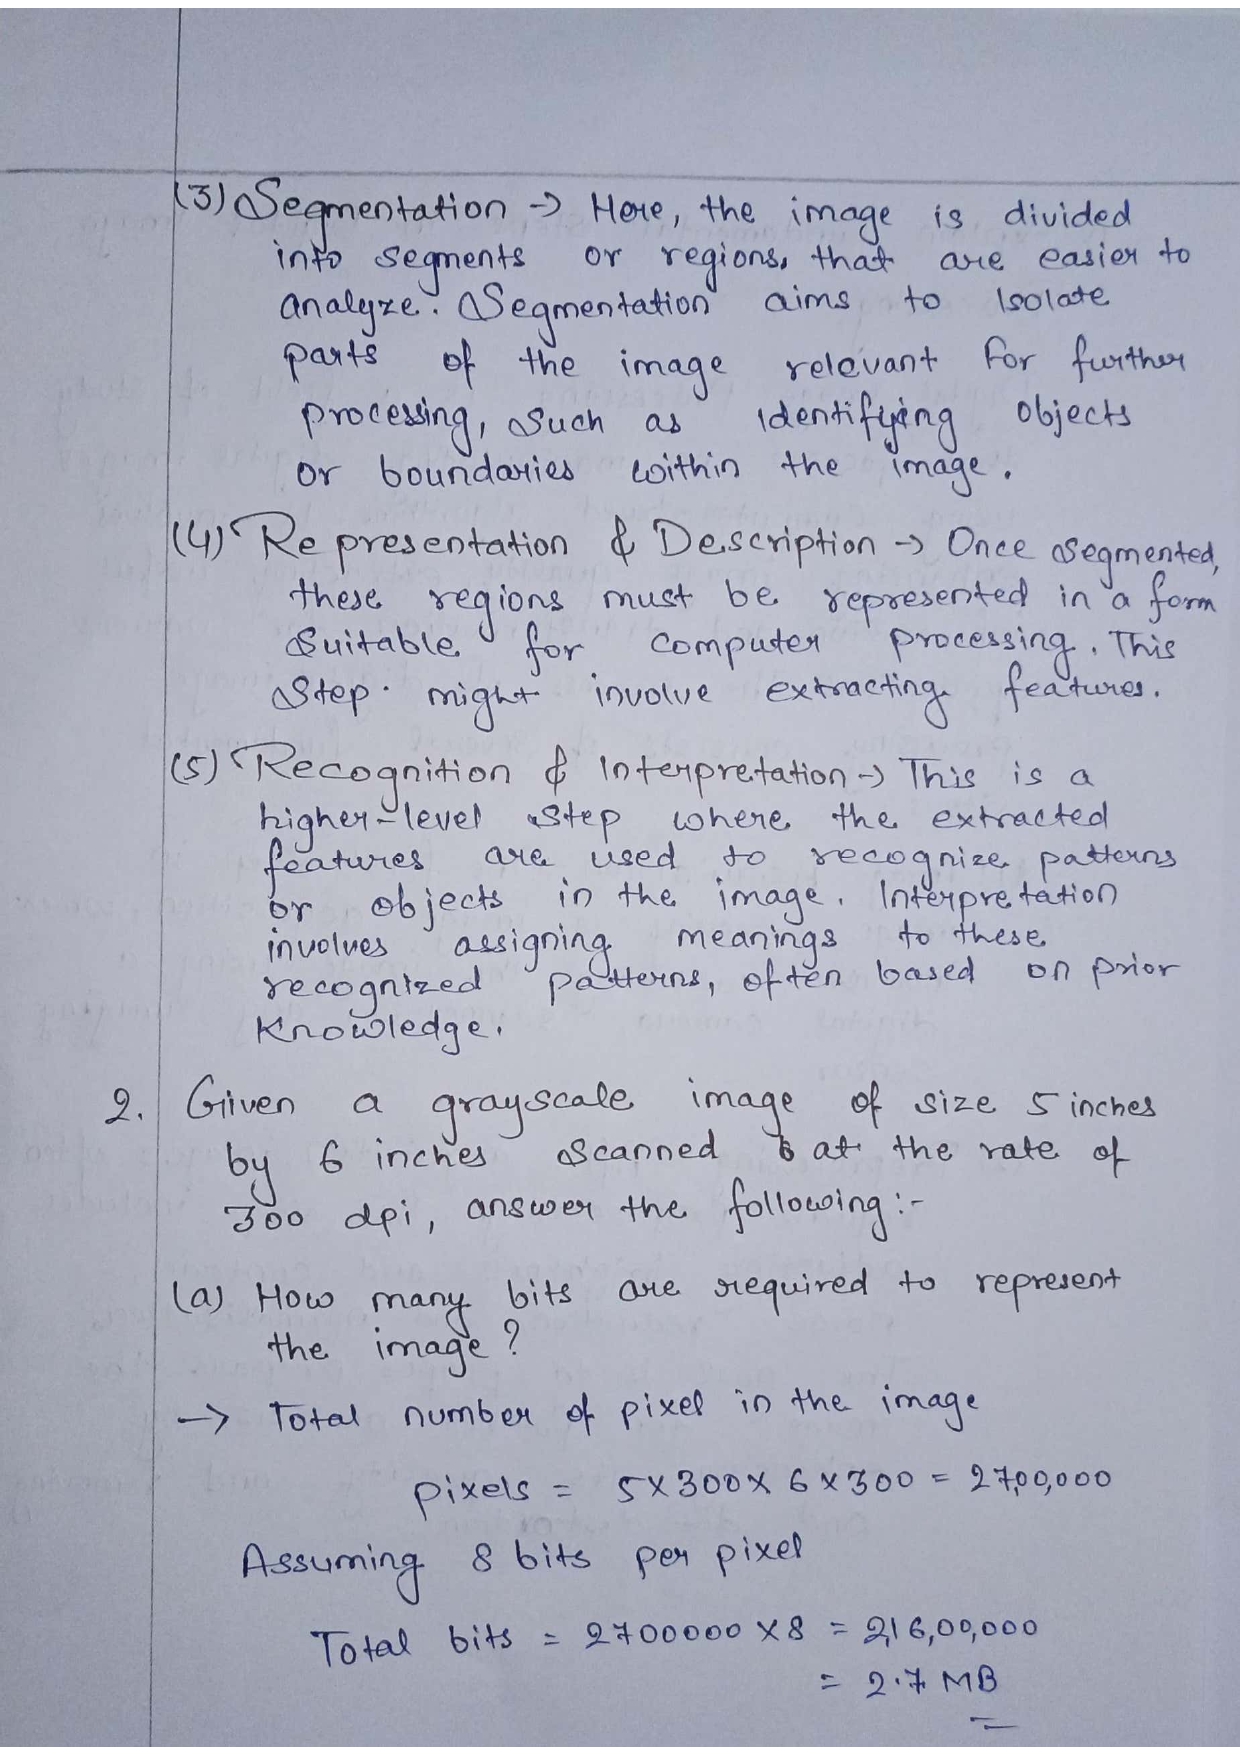 (3) Segmentation → Here, the image is divided
into segments or regions, that are easier to
analyze. Segmentation aims to Isolate
parts of the image relevant for further
processing, such as identifying objects
or boundaries within the image.
(4) Representation & Description → Once segmented,
these regions must be represented in a form
suitable for computer processing. This
step might involve extracting features.
(5) Recognition & Interpretation → This is a
higher-level step where the extracted
features are used to recognize patterns
or objects in the image. Interpretation
involves assigning meanings to these
recognized patterns, often based on prior
Knowledge.
2. Given a grayscale image of size 5 inches
by 6 inches scanned at the rate of
300 dpi, answer the following :-
(a) How many bits are required to represent
the image ?
→ Total number of pixel in the image
pixels = 5 x 300 x 6 x 300 = 27,00,000
Assuming 8 bits per pixel
Total bits = 2700000 x 8 = 2,16,00,000
= 2.7 MB